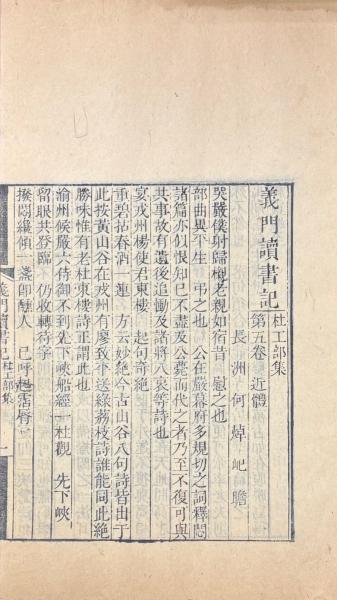 義門讀書記
杜工部集
第五卷 近體
長洲何焯屺瞻
哭嚴僕射歸櫬 老親如宿昔 慰之也
部曲異平生 弔之也 公在嚴幕府多規切之詞釋悶
諸篇亦似恨知已不盡及公薨而代之者乃至不復可與
共事故有遺後追慟及諸將八哀等詩也
宴戎州楊使君東樓 起句奇絶
重碧拈春酒一蓮 方云妙絶今古山谷八句詩皆出于
此按黃山谷在戎州有廖致平送綠荔枝詩誰能同此絶
勝味惟有老杜東樓詩正謂此也
渝州候嚴六侍御不到先下峽 船經一杜觀 先下峽
留眼共登臨 仍收轉待字
撥悶 纔傾一盞即醺人 已呼起霑脣
義門讀書記
杜工部集
一